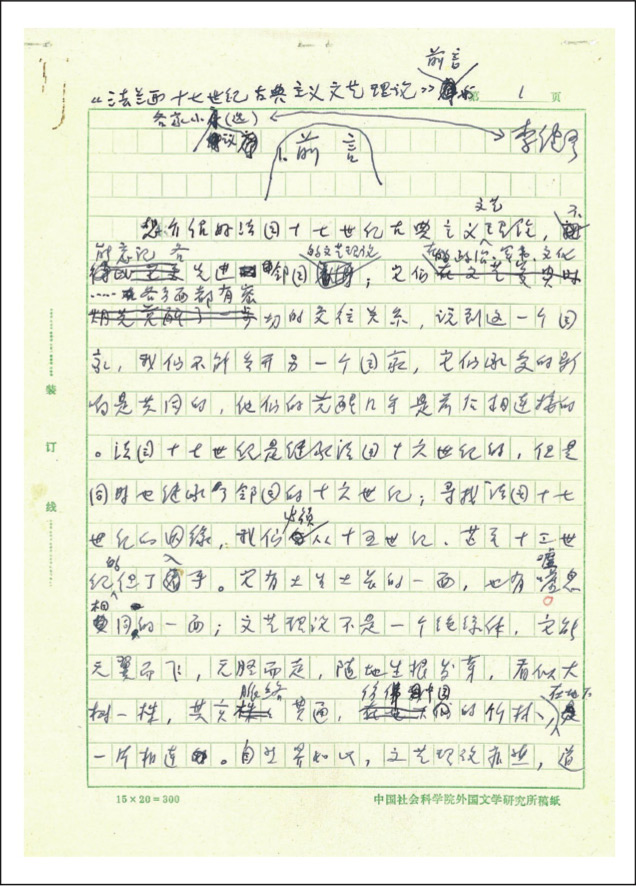 前言
《法兰西十七世纪古典主义文艺理论》 第 1 页
各家小序(选)
李健吾
前言
文艺
介绍的法国十七世纪古典主义理论,不
能忘记各
先进邻国的文艺理论;它们在政治、军事、文化
……各方面都有密
切的交往关系,谈到这一个国
家,我们不能丢开另一个国家,它们承受的影
响是共同的,他们的觉醒几乎是前后相连接的
。法国十七世纪是继承法国十六世纪的,但是
同时也继承了邻国的十六世纪;寻找法国十七
世纪的因缘,我们必须从十五世纪、甚至十四世
纪的但丁入手。它有土生土长的一面,也有嘘息
相同的一面;文艺理论不是一个绝缘体,它能
无翼而飞,无胫而走,随地生根发芽,看似大
树一株,其实脉络贯通,仿佛中国的竹林,在地下
一片相连。自然界如此,文艺理论亦然,道
装
订
线
15×20=300
中国社会科学院外国文学研究所稿纸